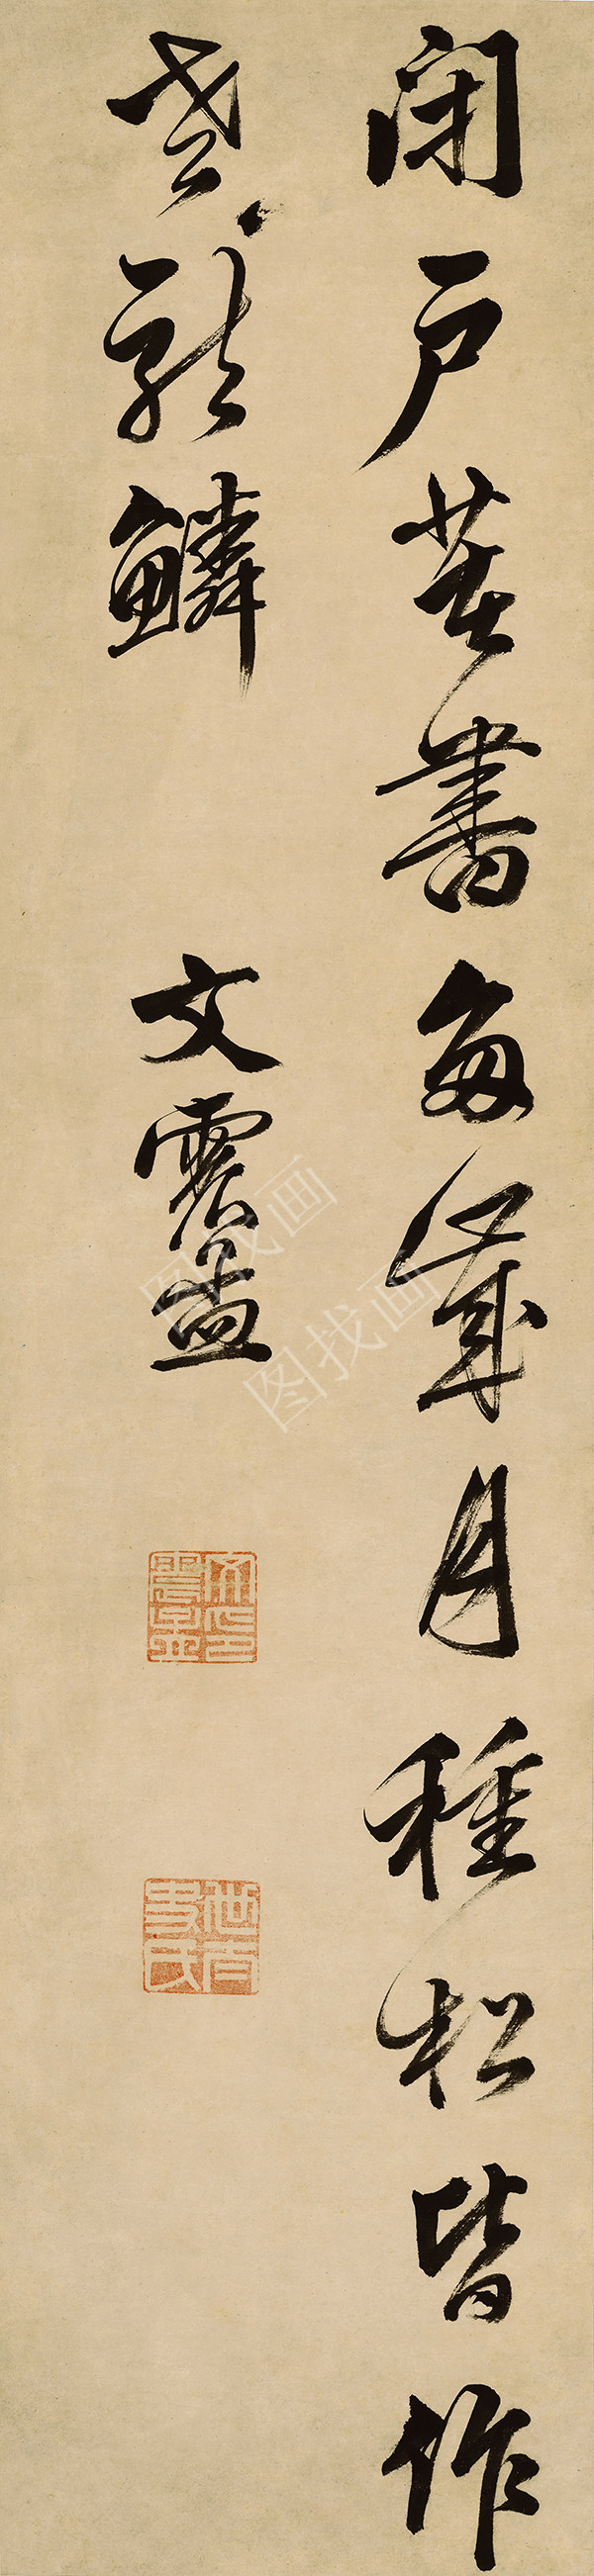 閉戶著書多歲月種松皆作
老龍鱗 文震孟
文震孟印
图找画
图找画